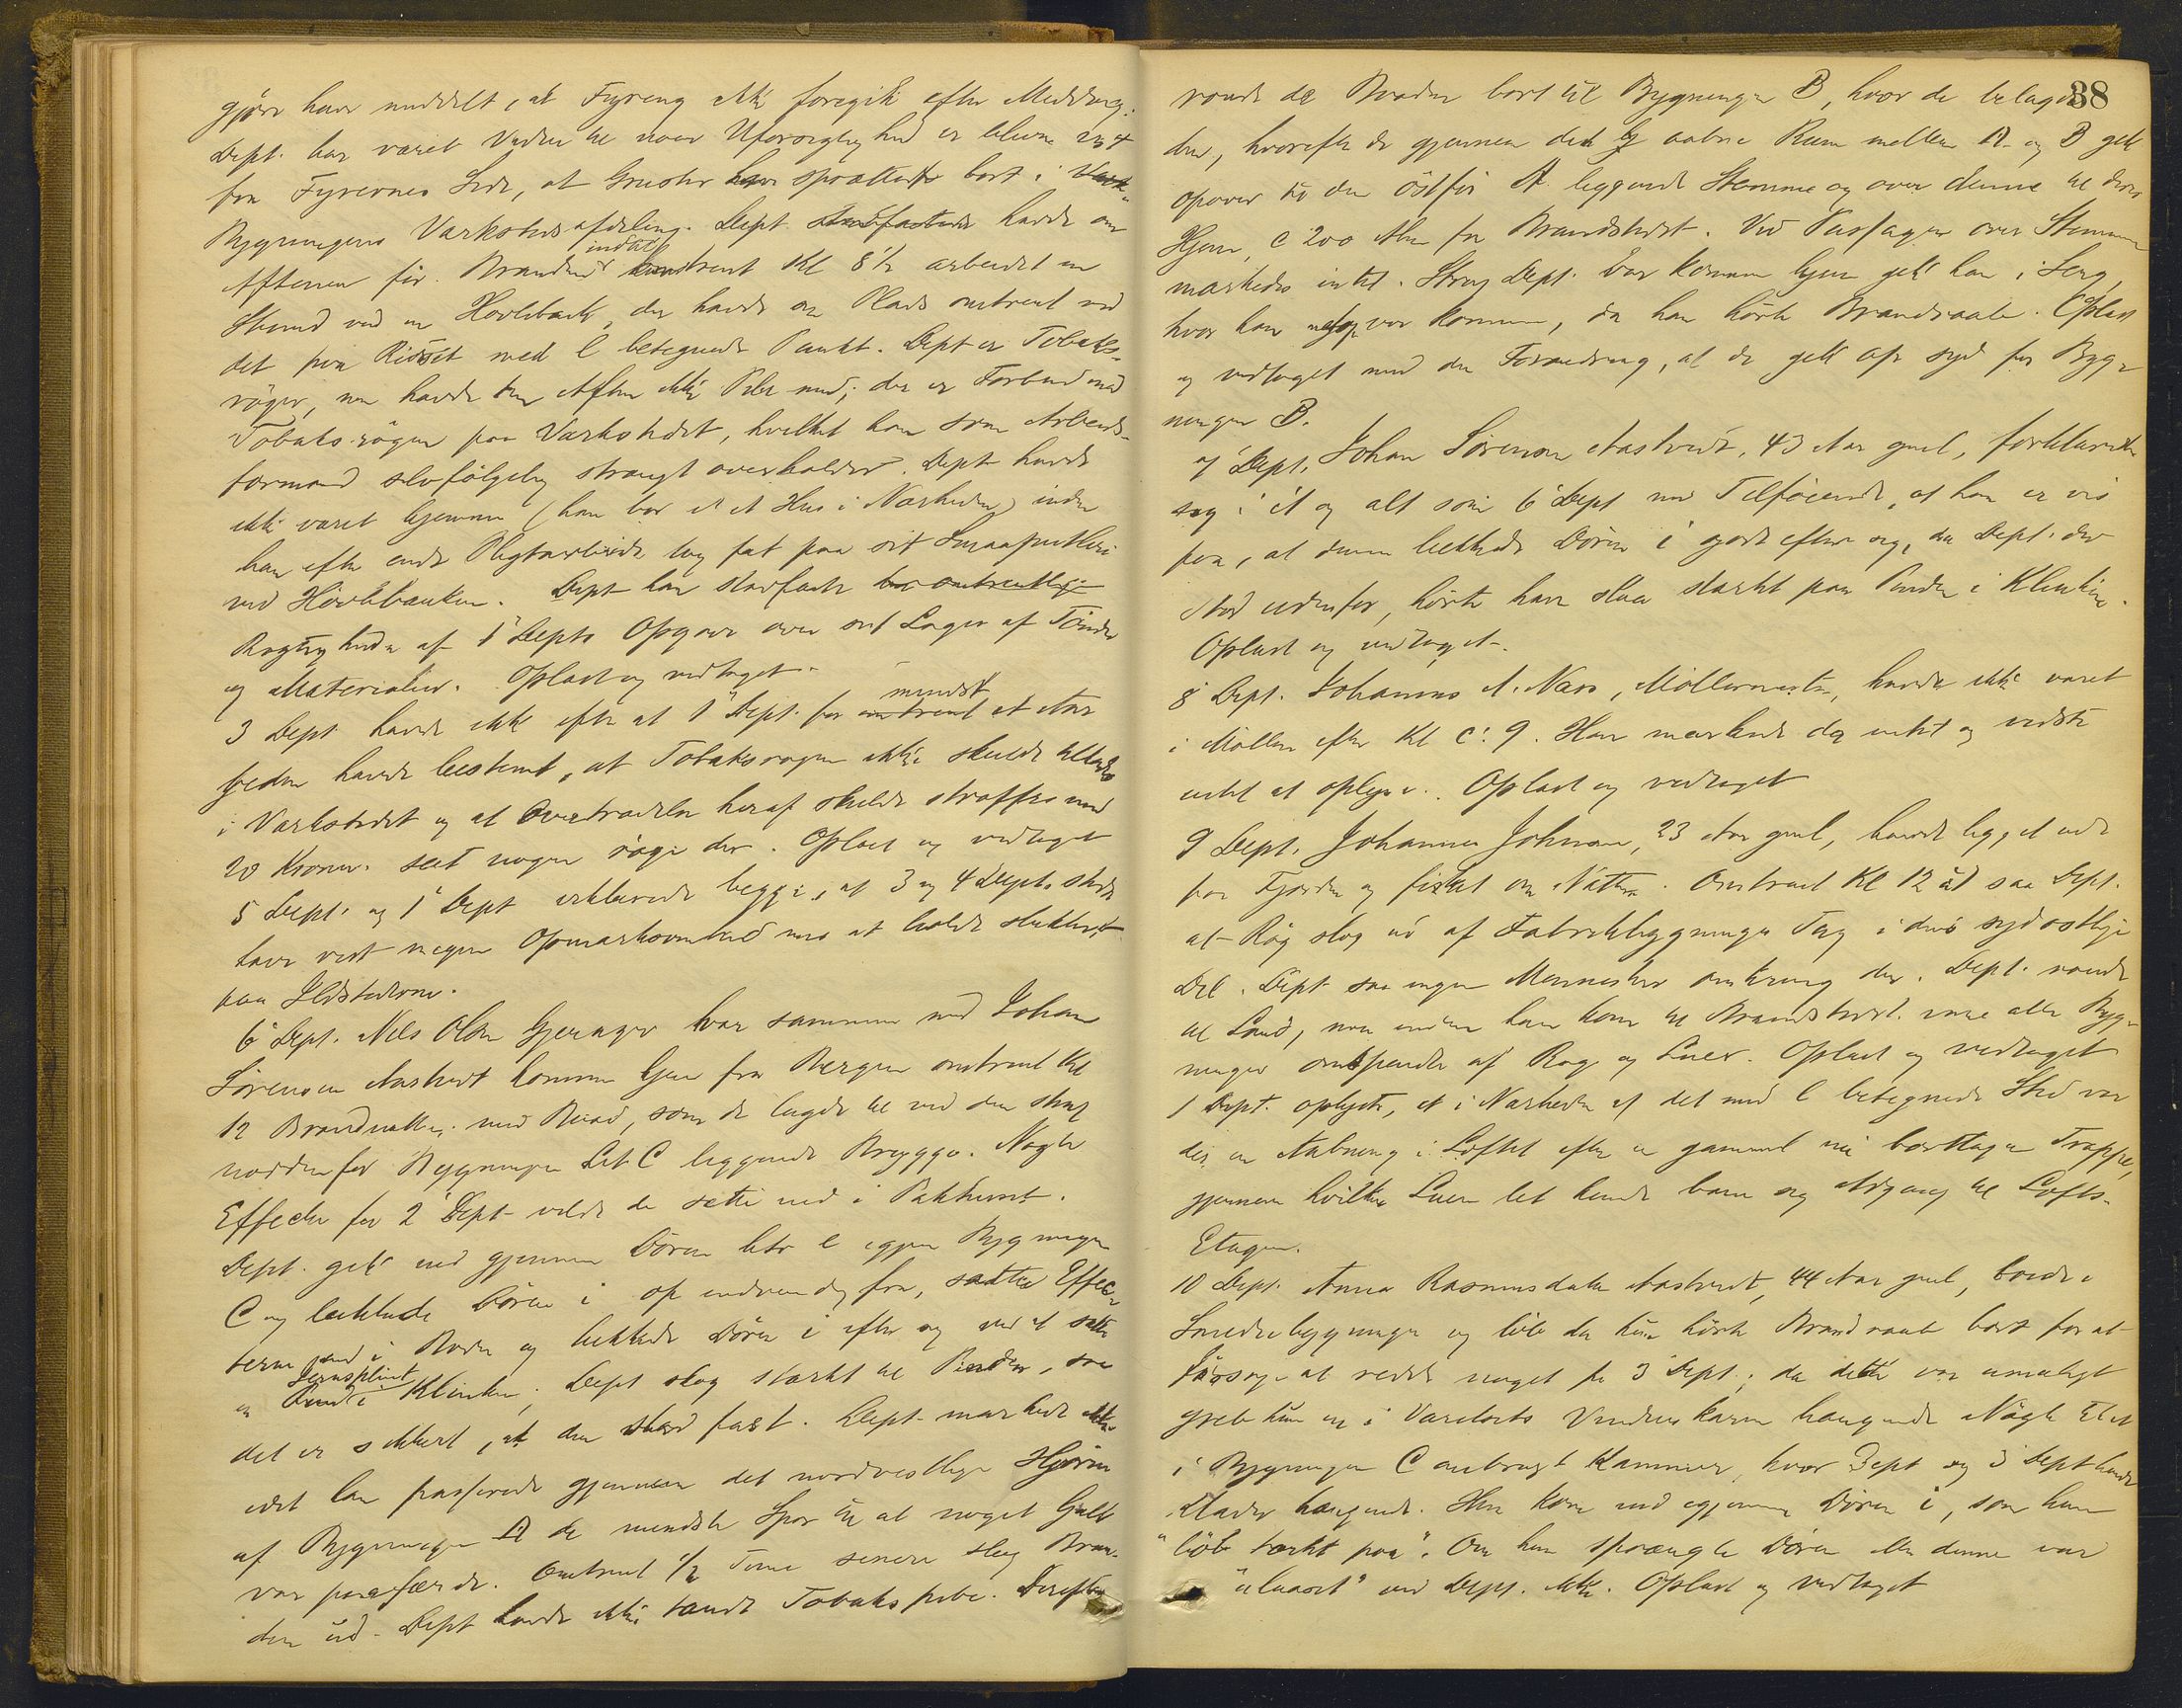 gjøre have meddelt, at Fyring ikke foregik efter Middag.
Dept. har været Vidne til naar Uforsigtighed er bleven
fra Fyrernes Side, at Gnister sprættede bort i
Bygningens Værkstedsafdeling. Dept. havde om
Aftenen før Branden indtil Kl 8½ arbeidet en
Stund ved en Høvlebænk, der havde sin Plads omtrent ved
det paa Risset med l betegnede Punkt. Dept er Tobaks-
røger, men havde den Aften ikke Pibe med; der er Forbud mod
Tobaksrøgen paa Værkstedet, hvilket han som Arbeids-
formand selvfølgelig strængt overholder. Dept havde
ikke været hjemme (han bor i et Hus i Nærheden) inden
han efter endt Pligtarbeide tog fat paa sit
ved Høvlebænken. Dept kan stadfæste
Rigtigheden af 1 Depts Opgave over sit Lager af Tønder
og Materialier. Oplæst og vedtaget.
3 Dept havde ikke efter at 1 Dept. for mindst et Aar
siden havde bestemt, at Tobaksrøgen ikke skulde tillades
i Værkstedet og at Overtrædelse heraf skulde straffes med
20 Kroner. seet nogen røge der. Oplæst og vedtaget
5 Dept. og 1 Dept erklærede begge, at 3 og 4 Dept. stedse
have vist megen Opmærksomhed med at holde slukket
paa Ildstederne.
6 Dept. Nils Olsen Gjerager var sammen med Johan
Sørensen Aastvedt kommen hjem fra Bergen omtrent Kl
12 Brandnatten med Baad, som de lagde til ved den strax
nordenfor Bygningen Lit C liggende Brygge. Nogle
Effecter for 2 Dept vilde de sætte ind i Pakhuset.
Dept. gik ind gjennem Døren litr e i Bygningen
C og lukkede Døren i op indvendig fra, satte Effec-
terne ind i Boden og lukkede Døren i efter sig ved at sætte
en Jernsplint i Klinken; Dept slog stærkt til Pinden, saa
det er sikkert, at den stod fast. Dept. mærkede ikke
idet han passerede gjennem det nordvestlige Hjørne
af Bygningen A det mindste Spor til at noget Galt
var paafærde. Omtrent ½ Time senere slog Bran-
den ud. Dept havde ikke tændt Tobakspibe. Derefter
38
roede de Baaden bort til Bygningen B, hvor de belagde
den, hvorefter de gjennem det aabne Rum mellem A og B gik
opover til den østfor A liggende Stemme og over denne til deres
Hjem, c 200 Alen fra Brandstedet. Ved Passagen over Stemmen
mærkedes intet. Strax Dept. var kommen hjem gik han i Seng,
hvor han netop var kommen, da han hørte Brandraabet. Oplæst
og vedtaget med den Forandring, at de gik op syd for Byg-
ningen B.
7 Dept. Johan Sørensen Aastvedt, 43 Aar gml, forklarede
sig i Et og alt som 6 Dept med Tilføiende, at han er vis
paa, at denne lukkede Døren i godt efter sig, da Dept. der
stod udenfor, hørte ham slaa stærkt paa Pinden i Klinken.
Oplæst og vedtaget.
8 Dept. Johannes A. Næss, Møllermester, havde ikke været
i Møllen efter Kl c. 9. Han mærkede da intet og vidste
intet at oplyse. Oplæst og vedtaget
9 Dept. Johannes Johnsen, 23 Aar gml, havde ligget ude
paa Fjorden og fisket om Natten. Omtrent Kl 12 à 1 saa Dept.
at Røg slog ud af Fabrikbygningens Tag i dens sydostlige
Del. Dept saa ingen Mennesker omkring der. Dept. roede
til Land, men inden han kom til Brandstedet vare alle Byg-
ninger omspændte af Røg og Luer. Oplæst og vedtaget
1 Dept. oplyste, at i Nærheden af det med l betegnede Sted var
der en Aabning i Loftet efter en gammel nu borttagen Trappe,
gjennem hvilken Luen let kunde bane sig Adgang til Lofts-
Etagen.
10 Dept. Anna Rasmusdatter Aastvedt, 44 Aar gml, boede i
Smediebygningen og løb da hun hørte Brandraabet bort for at
forsøge at redde noget for 3 Dept.; da dette var umuligt
greb hun en i Vinduskarm hængende Nøgle til et
i Bygningen C anbragt Kammer, hvor Dept og 3 Dept havde
Klæder hængende. Hun kom ind gjennem Døren i, som hun
"løb tørkt paa". Om hun sprængte Døren eller denne var
"ulaaset" ved Dept. ikke. Oplæst og vedtaget